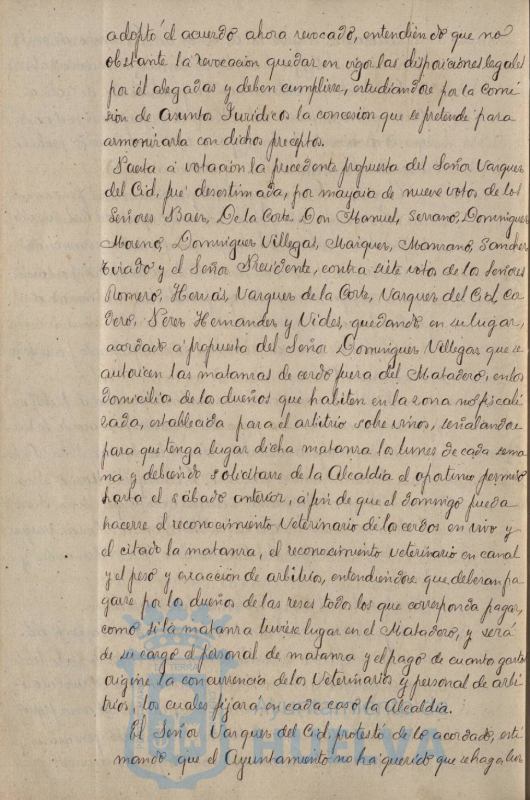 adoptó el acuerdo ahora revocado, entendiendo que no
obstante la revocación quedar en vigor las disposiciones legales
por él alegadas y deben cumplirse, estudiandose por la Comi
sion de Asuntos Juridicos la concesion que se pretende para
armonizarla con dichos preceptos.
Puesta á votacion la precedente propuesta del Señor Vazquez
del Cid, fué desestimada, por mayoria de nueve votos de los
Señores Baez, De la Corte Don Manuel, Serrano, Dominguez
Moreno, Dominguez Villegas, Maiquez, Manzano, Sanchez
Tirado y el Señor Presidente, contra siete votos de los Señores
Romero, Hervás, Vazquez de la Corte, Vazquez del Cid, Co
dero, Perez Hernandez y Vides, quedando en su lugar,
acordado á propuesta del Señor Dominguez Villegas que se
autoricen las matanzas de cerdo fuera del Matadero, en los
domicilios de los dueños que habiten en la zona no fiscali
zada, establecida para el arbitrio sobre vinos, señalandose
para que tenga lugar dicha matanza los lunes de cada sema
na y debiendo solicitarse de la Alcaldía el oportuno permiso
hasta el sábado anterior, á fin de que el domingo pueda
hacerse el reconocimiento Veterinario de los cerdos en vivo y
el citado la matanza, el reconocimiento veterinario en canal
y el peso y exacción de arbitrios, entendiendose que deberan pa
garse por los dueños de las reses todos los que corresponda pagar,
como si la matanza tuviese lugar en el Matadero, y será
de su cargo el personal de matanza y el pago de cuantos gastos
origine la concurrencia de los Veterinarios y personal de arbi
trios, los cuales fijará en cada caso la Alcaldía.
El Señor Vazquez del Cid, protestó de lo acordado, esti
mando que el Ayuntamiento no ha querido que se haga luz
HUELVA